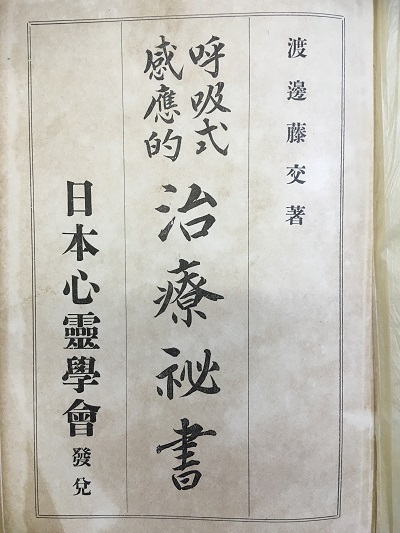 渡邊藤交著
呼吸式
感應的
治療祕書
日本心靈學會發兌